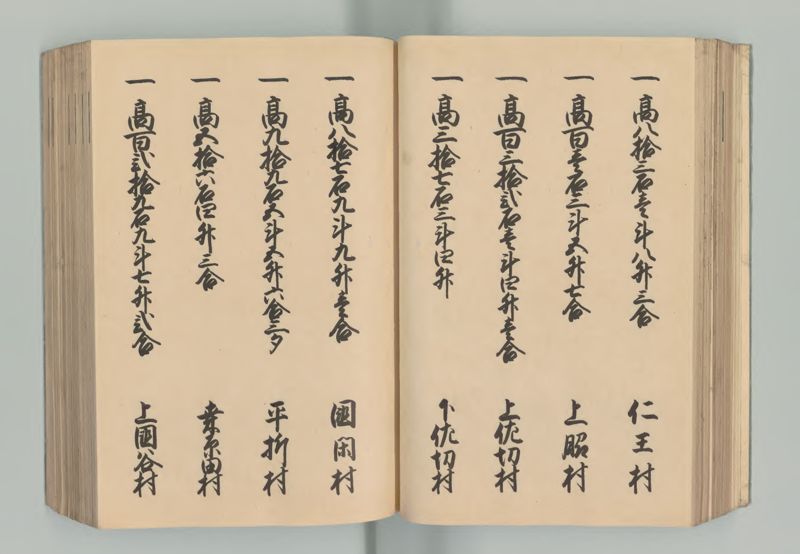 一高八拾三石壱斗八升三合 仁王村
一高百壱石三斗五升七合 上昭村
一高百三拾弐石壱斗四升壱合 上佐切村
一高三拾七石三斗四升 下佐切村
一高八拾七石九斗九升壱合 國閑村
一高九拾九石五斗五升六合三夕 平折村
一高五拾六石四升三合 桑原田村
一高百弐拾九石九斗七升弐合 上國谷村